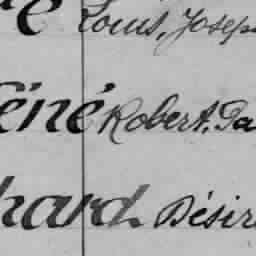 Louis, Josep
éné Robert, Ga
hard Désir